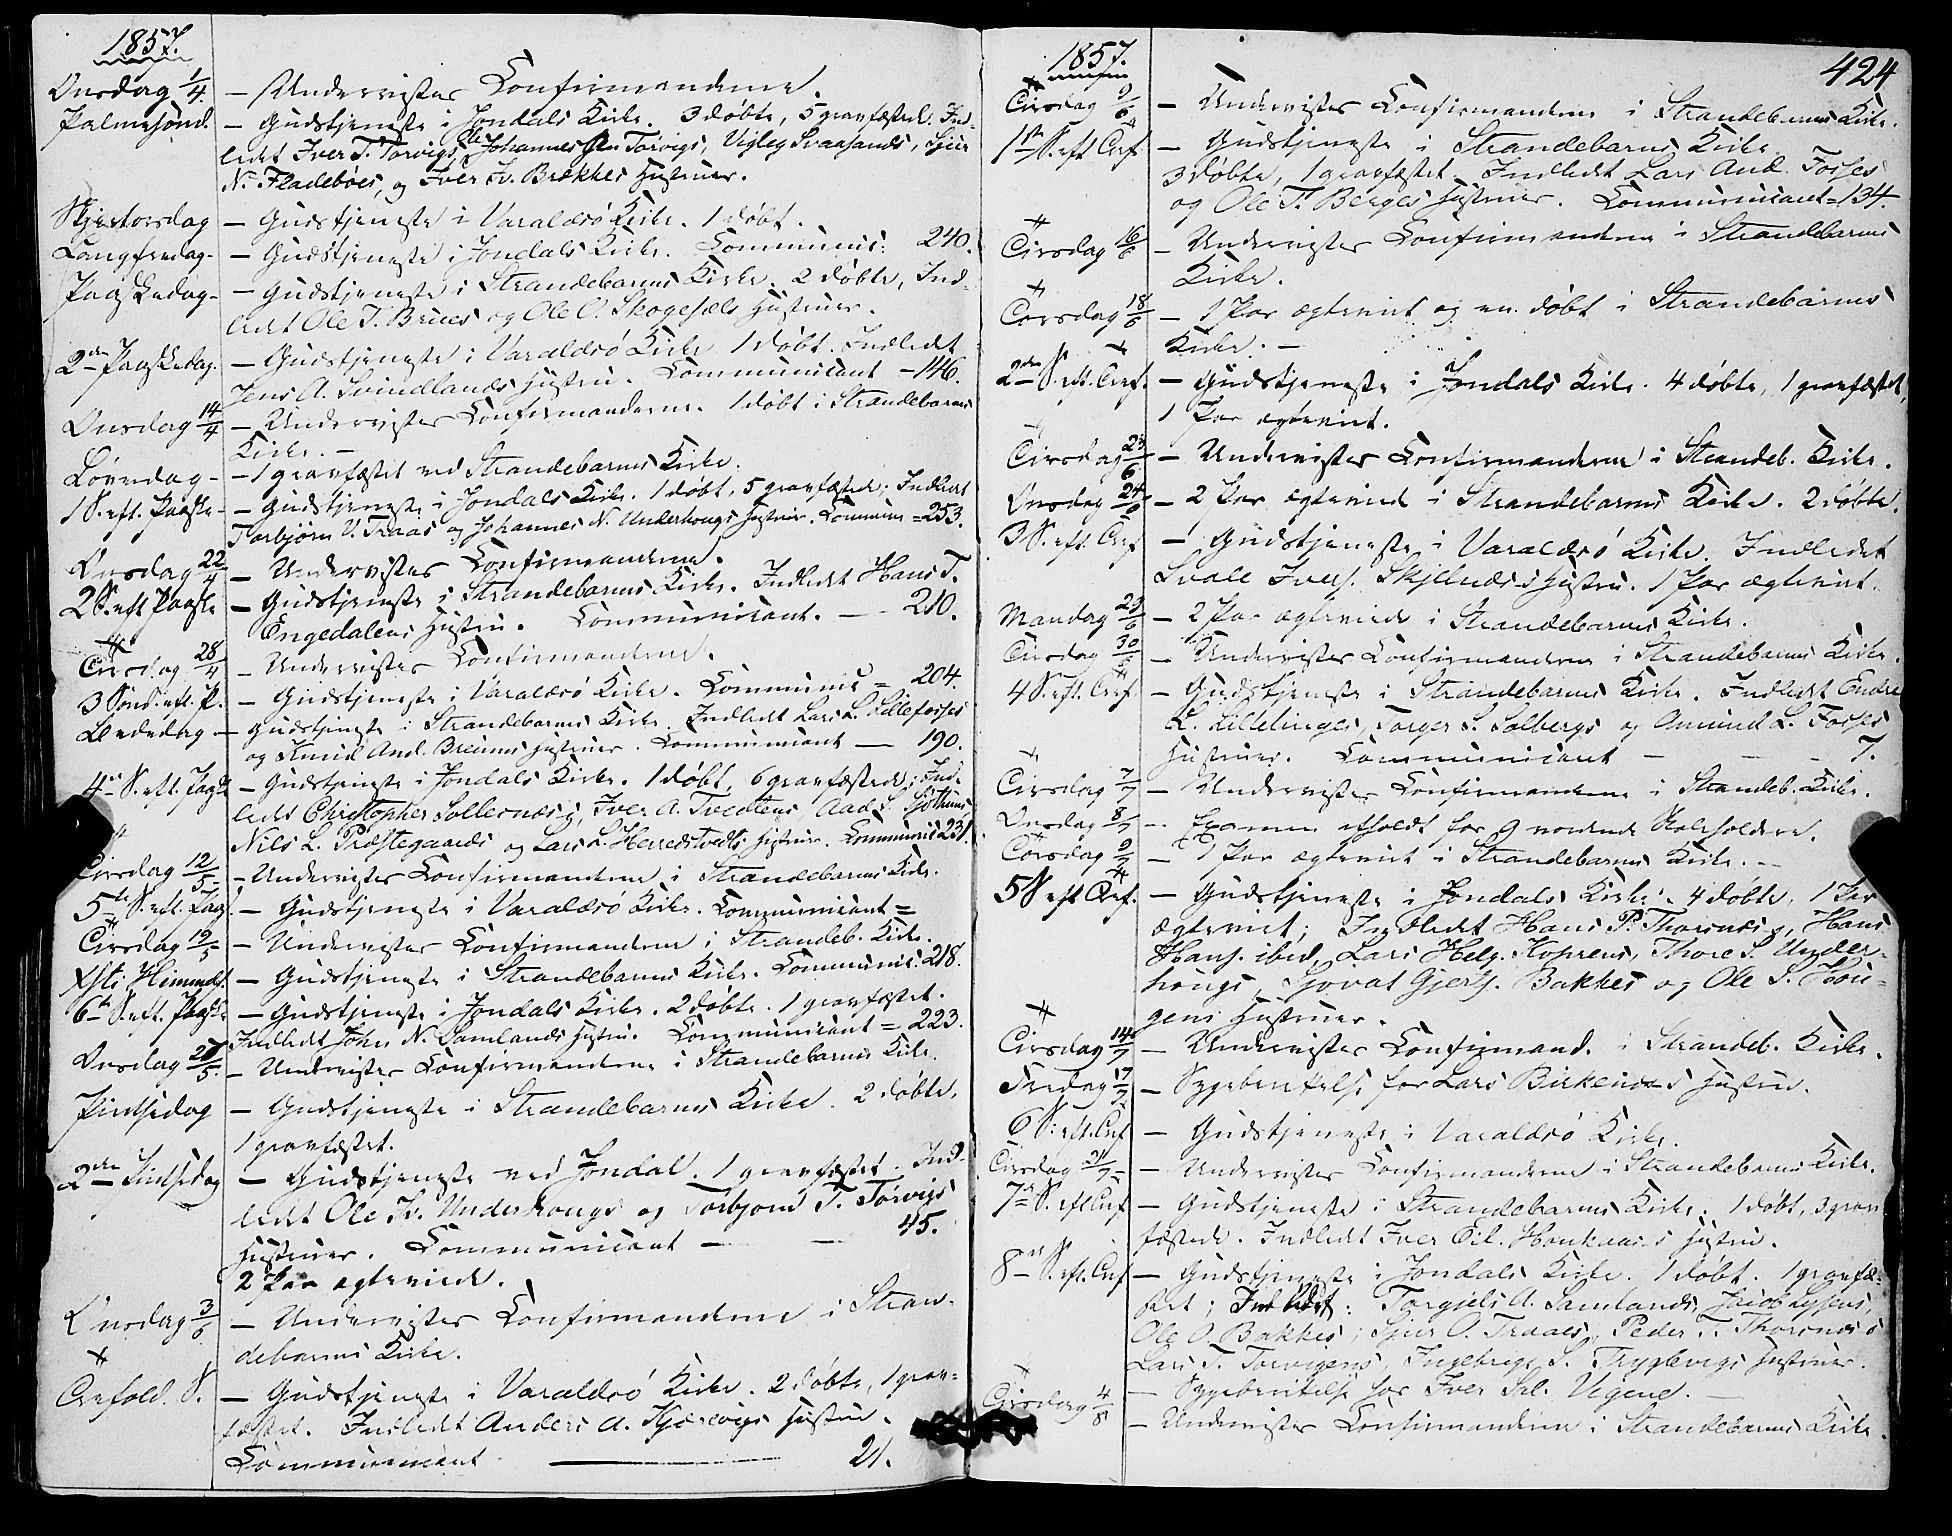 1857.
Onsdag 1/4. — Undervistes Confirmanderne.
Palmesönd. — Gudstjeneste i Jondals Kirke. 3 döbte, 5 gravfæstede. Ind-
ledet Iver T. Torvigs, Johannes Torvigs, Vigleg Svaasands, Sjur
N. Fladeböes, og Iver Iv. Brækkes Hustruer.
Skjertorsdag — Gudstjeneste i Varaldsö Kirke. 1 döbt.
Langfredag — Gudstjeneste i Jondals Kirke. Communic: 240.
Paaskedag — Gudstjeneste i Strandebarms Kirke. 2 döbte, Ind-
ledet Ole T. Brues og Ole O. Skogesæls Hustruer.
2den Paaskedag. — Gudstjeneste i Varaldsö Kirke 1 döbt. Indledet
Jens A. Svindlands Hustru. Communicant — 146.
Onsdag 14/4 — Undervistes Confirmanderne. 1 döbt i Strandebarms
Kirke. —
Löverdag — 1 gravfæstet ved Strandebarms Kirke.
1 S. eft. Paaske — Gudstjeneste i Jondals Kirke. 1 döbt, 5 gravfæstede; Indledet
Torbjörn V. Traas og Johannes N. Underhougs Hustruer. Commun = 253.
Onsdag 22/4 — Undervistes Confirmanderne.
2 S. eft Paaske — Gudstjeneste i Strandebarms Kirke. Indledet Hans T.
Engedalens Hustru. Communicant. — 210.
Tirsdag 28/4 — Undervistes Confirmanderne.
3 Sönd. eft. P. — Gudstjeneste i Varaldsö Kirke. Communic = 204.
Bededag — Gudstjeneste i Strandebarms Kirke. Indledt Lars L. Lillefosses
og Knud And. Breiums Hustruer. Communicant — 190.
4de S. eft. Paask — Gudstjeneste i Jondals Kirke. 1 döbt, 6 gravfæstede; Ind-
ledt Christopher Sollernæs, Iver A. Tvedtens, Aad S. Sjothuns
Nils L. Præstegaards og Lars L. Herredstvedts Hustruer. Communic 231.
Tirsdag 12/5 — Undervistes Confirmanderne i Strandebarms Kirke.
5te S. eft. Paa — Gudstjeneste i Varaldsö Kirke. Communicant =
Tirsdag 19/5 — Undervistes Confirmanderne i Strandeb. Kirke.
Xsti Himmelf. — Gudstjeneste i Strandebarms Kirke. Communic. 218.
6te S. eft. Paaske — Gudstjeneste i Jondals Kirke. 2 döbte. 1 gravfæstet.
Indledt John N. Samlands Hustru. Communicant = 223.
Onsdag 27/5. — Undervistes Confirmanderne i Strandebarms Kirke.
Pintsedag — Gudstjeneste i Strandebarms Kirke. 2 döbte.
1 gravfæstet.
2den Pintsedag — Gudstjeneste ved Jondal. 1 gravfæstet. Ind-
ledt Ole Iv. Underhougs og Torbjorn T. Torvigs
Hustruer. Communicant — — 45.
2 Par ægteviede.
Onsdag 3/6 — Undervistes Confirmanderne i Stran-
debarms Kirke.
Trefold. S. — Gudstjeneste i Varaldsö Kirke. 2 döbte, 1 grav-
fæstet. Indledt Anders A. Kjærevigs Hustru.
Communicant — 21.
1857.
424
Tirsdag 9/6 — Undervistes Confirmanderne i Strandebarms Kirke.
1ste S. eft Tref — Gudstjeneste i Strandebarms Kirke.
3 döbte, 1 gravfæstet. Indledt Lars And. Fosses
og Ole T. Berges Hustruer. Communicant = 134.
Tirsdag 16/6 — Undervistes Confirmanderne i Strandebarms
Kirke.
Torsdag 18/6 — 1 Par ægteviet og en döbt i Strandebarms
Kirke. —
2den S. eft. Tref. — Gudstjeneste i Jondals Kirke. 4 döbte, 1 gravfæstet,
1 Par ægteviet.
Tirsdag 23/6 — Undervistes Confirmanderne i Strandeb. Kirke.
Onsdag 24/6 — 2 Par ægteviede i Strandebarms Kirke. 2 döbte.
3 S. eft. Tref — Gudstjeneste i Varaldsö Kirke. Indledet
Svale Ivers. Skjelnæs's Hustru. 1 Par ægteviet.
Mandag 29/6 — 2 Par ægteviede i Strandebarms Kirke.
Tirsdag 30/6 — Undervistes Confirmanderne i Strandebarms Kirke.
4 S. eft. Tref. — Gudstjeneste i Strandebarms Kirke. Indledt Endre
L. Lillelinges, Torger S. Solbergs og Amund L. Fosses
Hustruer. Communicant — — — 7.
Tirsdag 7/7 — Undervistes Confirmanderne i Strandeb. Kirke.
Onsdag 8/7 — Examen afholdt for 9 vordende Skoleholdere.
Torsdag 9/7 — 1 Par ægteviet i Strandebarms Kirke. —
5 S eft Tref. — Gudstjeneste i Jondals Kirke. 4 döbte, 1 Par
ægteviet; Indledt Hans P. Thorsnæs, Hans
Hans. ibid, Lars Helg. Koprens, Thore S. Under-
hougs, Sjovat Gjerts. Bakkes og Ole S.
gens Hustruer.
Tirsdag 14/7 — Undervistes Confirmand. i Strandeb. Kirke.
Fredag 17/7 — Sygeberettelse for Lars Birkenæs's Hustru.
6 S: eft. Tref — Gudstjeneste i Varaldsö Kirke.
Tirsdag 21/7 — Undervistes Confirmanderne i Strandebarms Kirke.
7de S. eft Tref — Gudstjeneste i Strandebarms Kirke. 1 döbt, 3 grav-
fæstede. Indledt Iver Eil. Haukaas's Hustru.
8de S. eft. Tref — Gudstjeneste i Jondals Kirke. 1 döbt. 1 gravfæ-
stet; Indledt: Torgiels A. Samlands, Jacob Lysens,
Ole O. Bakkes, Sjur O. Traaes, Peder T. Thorsnæs's
Lars T. Torvigens, Ingebrigt S. Tryglevigs Hustruer.
— Sygeberettelse for Iver Sel. Vigend. —
Tirsdag 4/8 — Undervistes Confirmanderne i Strandebarms Kirke.